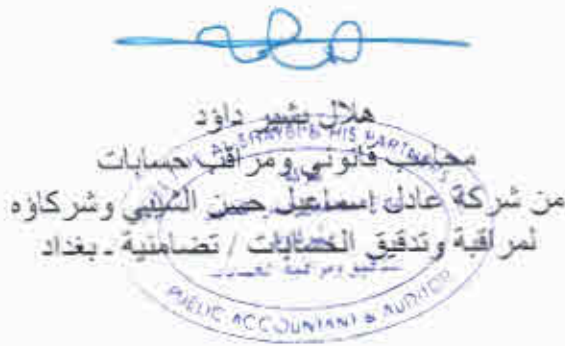 هلال بشير داؤد
محاسب قانوني ومراقب حسابات
من شركة عادل إسماعيل حسن الشيبي وشركاؤه
لمراقبة وتدقيق الحسابات / تضامنية - بغداد
HIS PARTNERS
PUBLIC ACCOUNTANT & AUDITOR